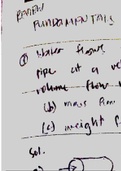 REVIEW
FUNDAMENTALS
① Water flows
pipe at a ve
volume flow
(b) mass flow
(c) weight f
Sol.